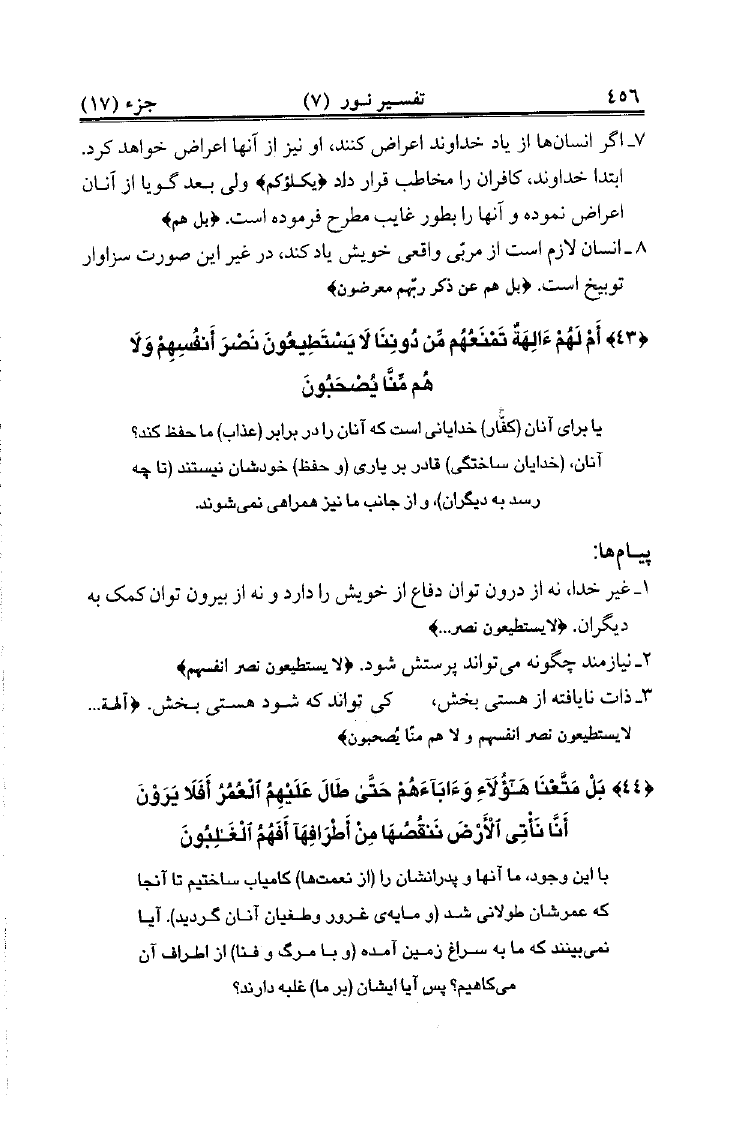 ٤٥٦ تفسیر نور (٧) جزء (١٧)
٧ـ اگر انسان‌ها از یاد خداوند اعراض کنند، او نیز از آنها اعراض خواهد کرد.
ابتدا خداوند، کافران را مخاطب قرار داد ﴿یکلؤکم﴾ ولی بعد گویا از آنان
اعراض نموده و آنها را بطور غایب مطرح فرموده است. ﴿بل هم﴾
٨ ـ انسان لازم است از مربّی واقعی خویش یاد کند، در غیر این صورت سزاوار
توبیخ است. ﴿بل هم عن ذکر ربّهم معرضون﴾
﴿٤٣﴾ أَمْ لَهُمْ ءَالِهَةٌ تَمْنَعُهُم مِّن دُونِنَا لَا يَسْتَطِيعُونَ نَصْرَ أَنفُسِهِمْ وَلَا
هُم مِّنَّا يُصْحَبُونَ
یا برای آنان (کفّار) خدایانی است که آنان را در برابر (عذاب) ما حفظ کند؟
آنان، (خدایان ساختگی) قادر بر یاری (و حفظ) خودشان نیستند (تا چه
رسد به دیگران)، و از جانب ما نیز همراهی نمی‌شوند.
پیام‌ها:
١ـ غیر خدا، نه از درون توان دفاع از خویش را دارد و نه از بیرون توان کمک به
دیگران. ﴿لا یستطیعون نصر...﴾
٢ـ نیازمند چگونه می‌تواند پرستش شود. ﴿لا یستطیعون نصر انفسهم﴾
٣ـ ذات نایافته از هستی بخش، کی تواند که شود هستی بخش. ﴿آلهة...
لایستطیعون نصر انفسهم و لا هم منّا یُصحبون﴾
﴿٤٤﴾ بَلْ مَتَّعْنَا هَـٰٓؤُلَآءِ وَءَابَآءَهُمْ حَتَّىٰ طَالَ عَلَيْهِمُ ٱلْعُمُرُ أَفَلَا يَرَوْنَ
أَنَّا نَأْتِى ٱلْأَرْضَ نَنقُصُهَا مِنْ أَطْرَافِهَآ أَفَهُمُ ٱلْغَـٰلِبُونَ
با این وجود، ما آنها و پدرانشان را (از نعمت‌ها) کامیاب ساختیم تا آنجا
که عمرشان طولانی شد (و مایه‌ی غرور وطغیان آنان گردید). آیا
نمی‌بینند که ما به سراغ زمین آمده (و با مرگ و فنا) از اطراف آن
می‌کاهیم؟ پس آیا ایشان (بر ما) غلبه دارند؟